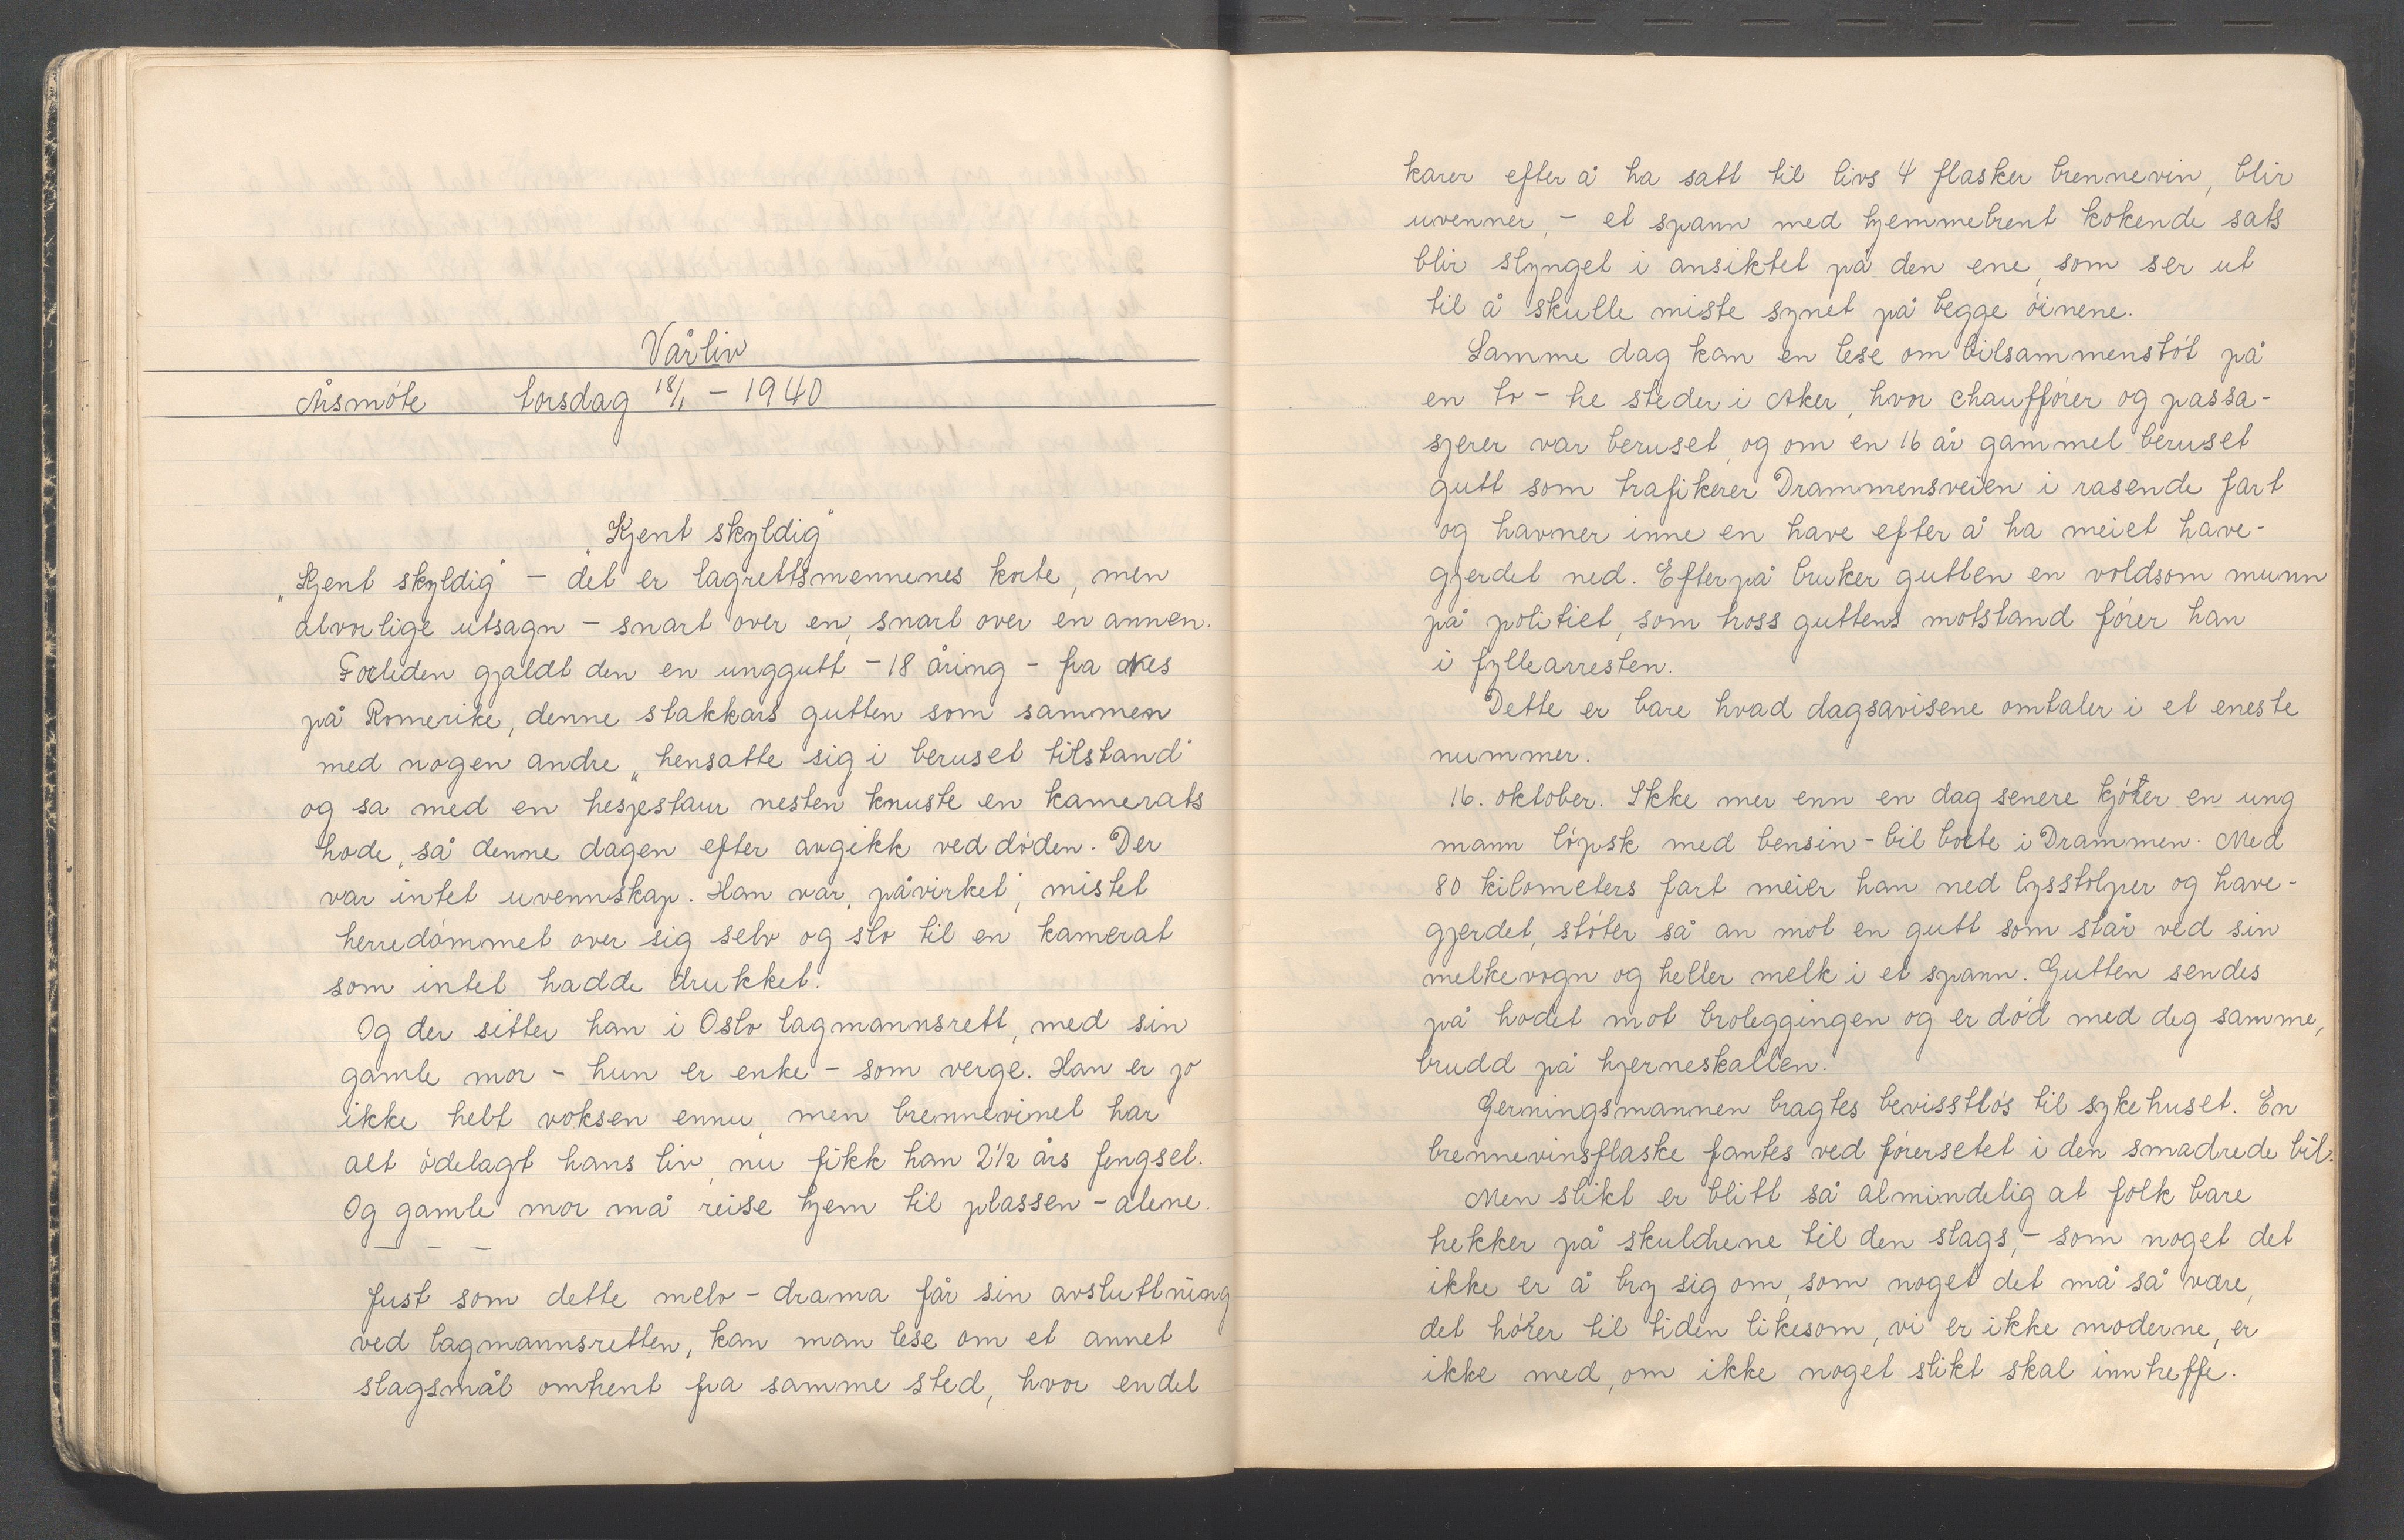 Vårliv
Årsmöte torsdag 18/1 - 1940
"Kjent skyldig"
„Kjent skyldig" - det er lagrettsmennenes korte, men
alvorlige utsagn - snart over en, snart over en annen.
Forleden gjaldt den en unggutt - 18 åring - fra Nes
på Romerike, denne stakkars gutten som sammen
med nogen andre „hensatte sig i beruset tilstand"
og sa med en hesjestaur nesten knuste en kamerats
hode, så denne dagen efter avgikk ved döden. Der
var intet uvennskap. Han var „påvirket", mistet
herredömmet over sig selv og slo til en kamerat
som intet hadde drukket.
Og der sitter han i Oslo lagmannsrett, med sin
gamle mor - hun er enke - som verge. Han er jo
ikke helt voksen ennu, men brennevinet har
alt ödelagt hans liv, nu fikk han 2 1/2 års fengsel.
Og gamle mor må reise hjem til plassen - alene.
- - -
Just som dette melo-drama får sin avsluttning
ved lagmannsretten, kan man lese om et annet
slagsmål omtrent fra samme sted, hvor endel
karer efter å ha satt til livs 4 flasker brennevin, blir
uvenner, - et spann med hjemmebrent kokende sats
blir slynget i ansiktet på den ene, som ser ut
til å skulle miste synet på begge öinene.
Samme dag kan en lese om bilsammenstöt på
en to - tre steder i Aker, hvor chauffører og passa-
sjerer var beruset, og om en 16 år gammel beruset
gutt som trafikerer Drammensveien i rasende fart
og havner inne en have efter å ha meiet have-
gjerdet ned. Efterpå bruker gutten en voldsom munn
på politiet, som tross guttens motstand förer han
i fyllearresten.
Dette er bare hvad dagsavisene omtaler i et eneste
nummer.
16. oktober. Ikke mer enn en dag senere kjörer en ung
mann löpsk med bensin-bil borte i Drammen. Med
80 kilometers fart meier han ned lysstolper og have-
gjerdet, stöter så an mot en gutt som står ved sin
melkevogn og heller melk i et spann. Gutten sendes
på hodet mot broleggingen og er död med deg samme,
brudd på hjerneskallen.
Gerningsmannen bragtes bevisstlös til sykehuset. En
brennevinsflaske fantes ved förersetet i den smadrede bil.
Men slikt er blitt så almindelig at folk bare
trekker på skuldrene til den slags, - som noget det
ikke er å bry sig om, som noget det må så være,
det hörer til tiden likesom, vi er ikke moderne, er
ikke med, om ikke noget slikt skal inntreffe.